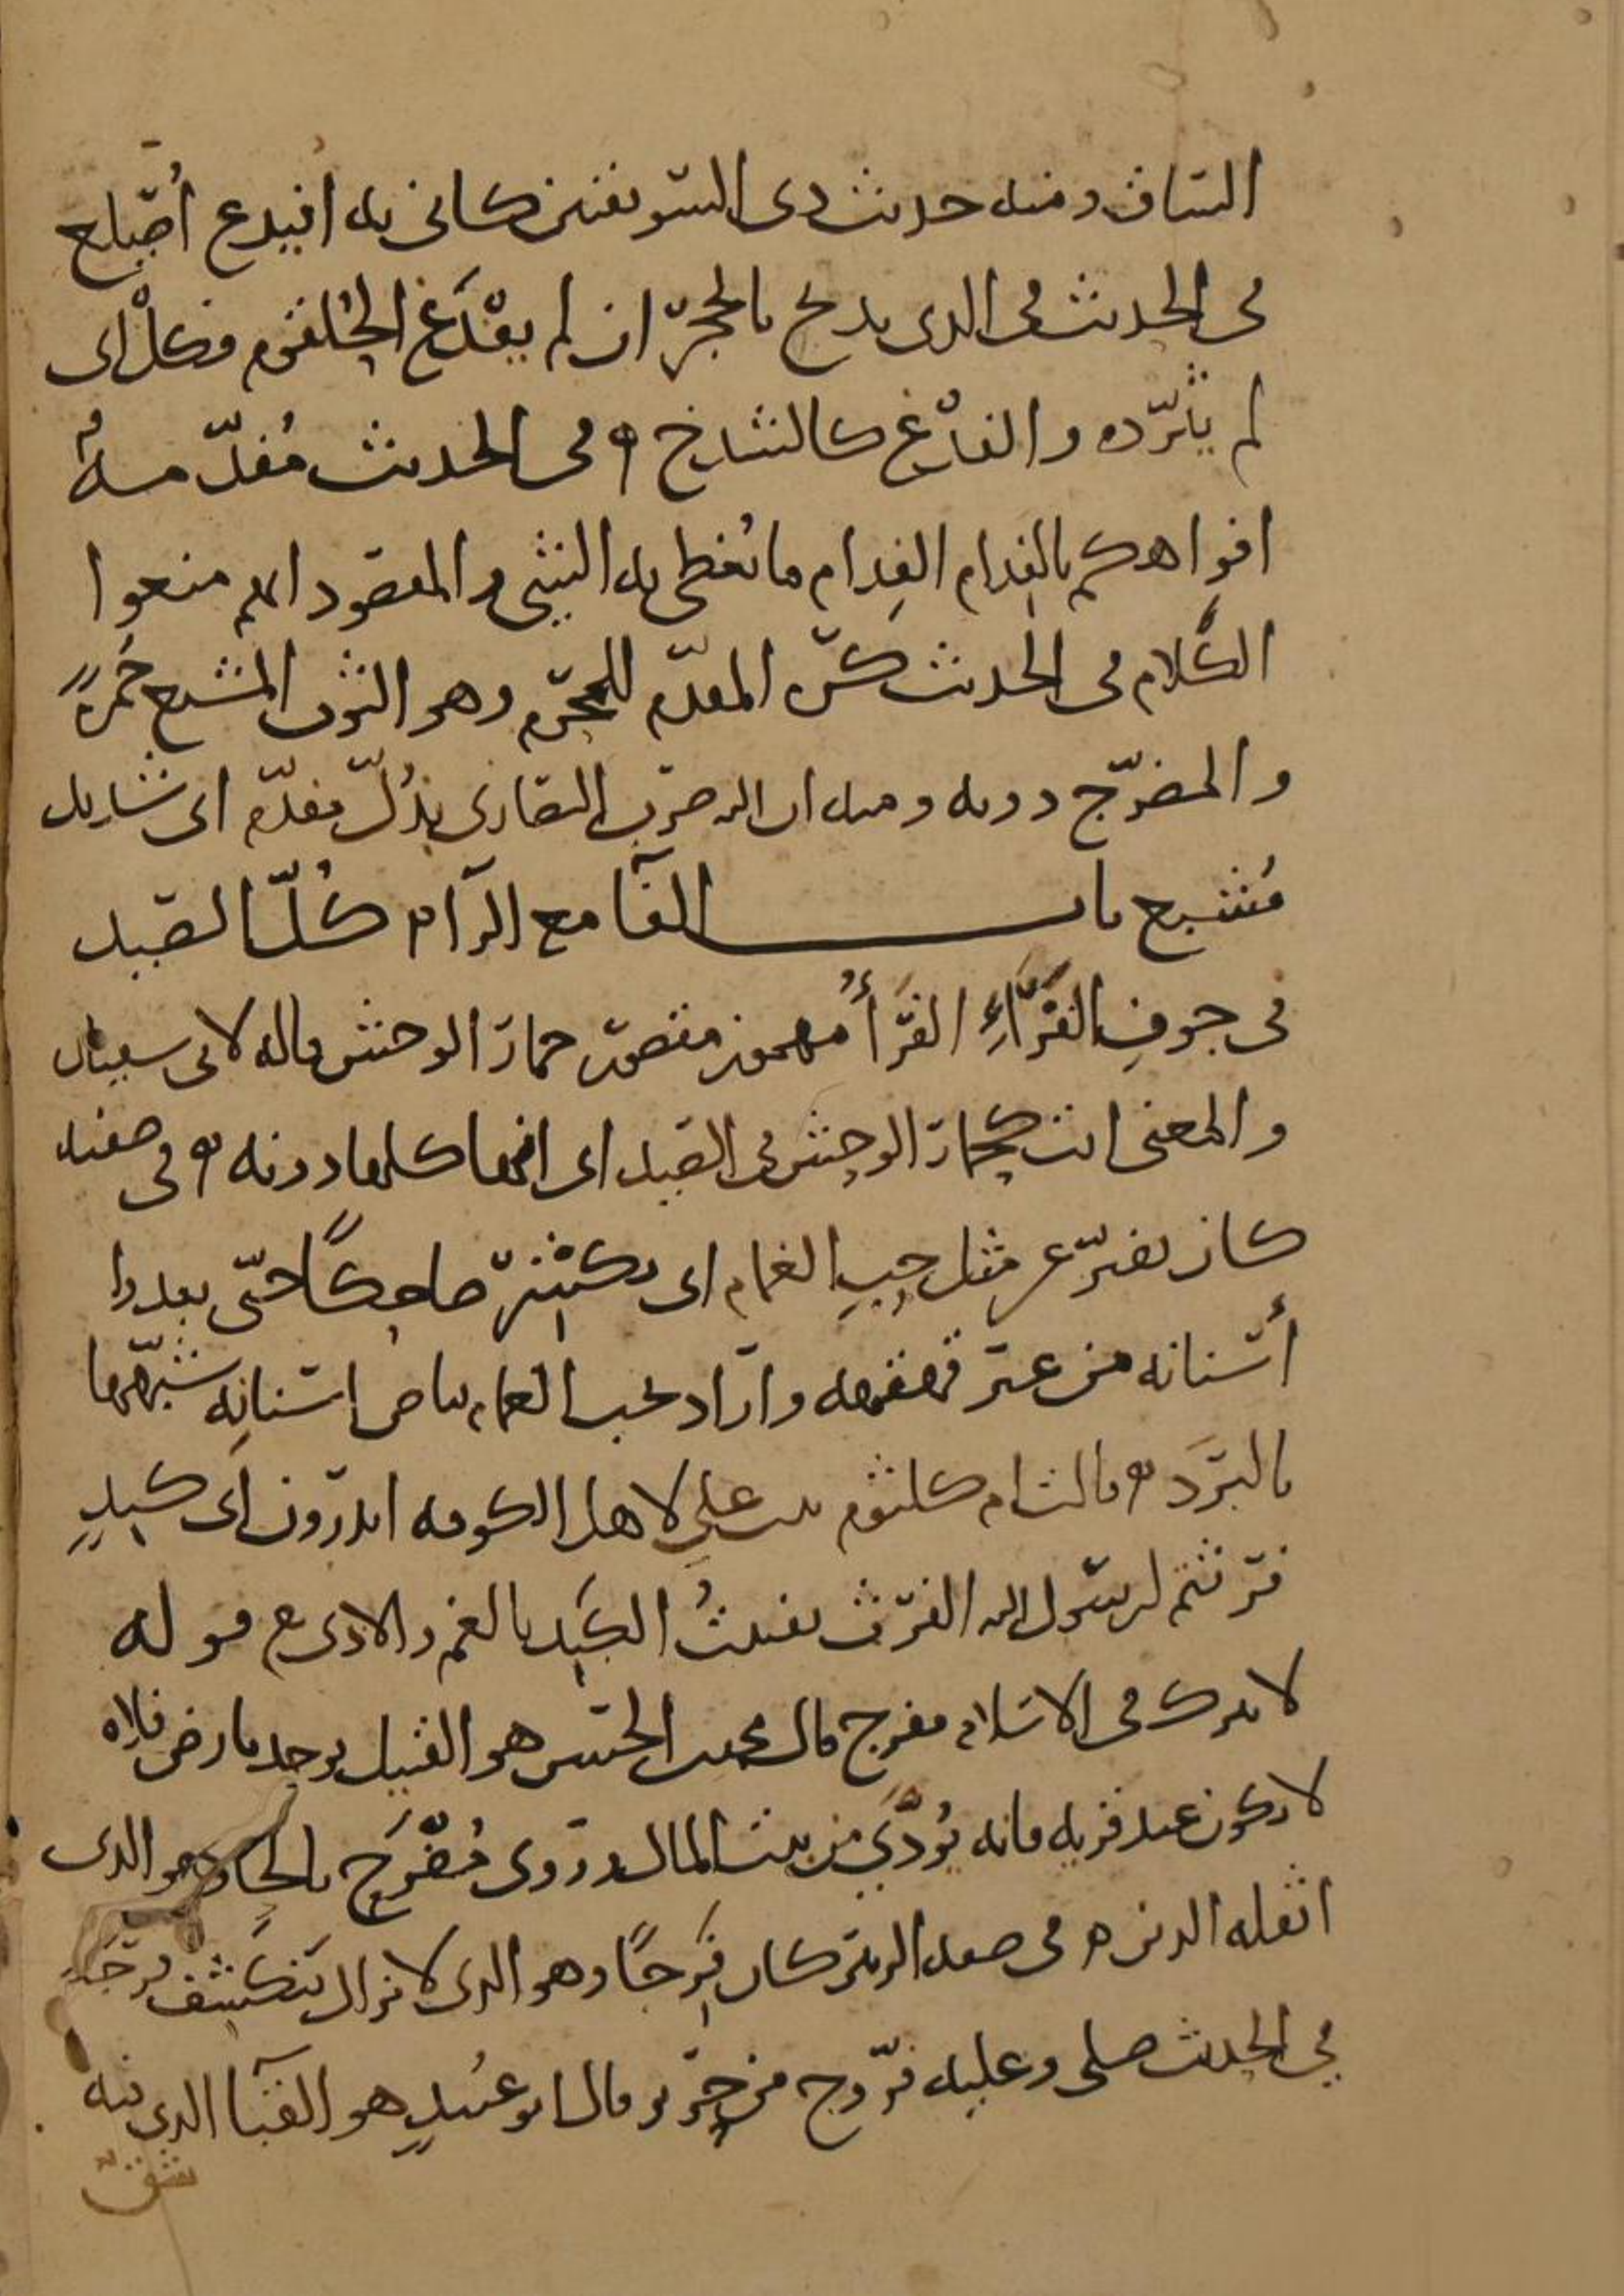 الساق ومنه حديث ذى السويقتين كانى به افيدع أصيلع
فى الحديث فى الذى يذبح بالحجر ان لم يفدغ الحلقوم فكل اى
لم يثرده والفدغ كالشدخ وفى الحديث مفدمة
افواهكم بالفدام الفدام ما يغطى به الشئ والمقصود انهم منعوا
الكلام فى الحديث كره المفدم للمحرم وهو الثوب المشبع حمرة
والمضرج دونه ومنه ان الله ضرب النصارى بذل مفدم اى شديد
مشبع باب الفا مع الرآء كل الصيد
فى جوف الفرإ الفرأ مهموز مقصور حمار الوحش قاله لابى سفيان
والمعنى انت كحمار الوحش فى الصيد اى انها كلها دونه وفى صفته
كان يفتر عن مثل حب الغمام اى يكشر ضاحكا حتى يبدوا
أسنانه من غير قهقهة واراد بحب الغمام بياض اسنانه شبهها
بالبرد وقالت ام كلثوم بنت على لاهل الكوفة اتدرون اى كبد
فرثتم لرسول الله الفرث تفتيت الكبد بالغم والاذى قوله
لا يترك فى الاسلام مفرج قال محمد بن الحسن هو القتيل يوجد بارض فلاة
لا يكون عند قرية فانه يودى من بيت المال وروى مفرح بالحا وهو الذى
اثقله الدين فى صفة الزبير كان فرجا وهو الذى لا يزال يتكشف فرجه
فى الحديث صلى وعليه فروج من حرير قال ابو عبيد هو القبا الذى فيه
شق